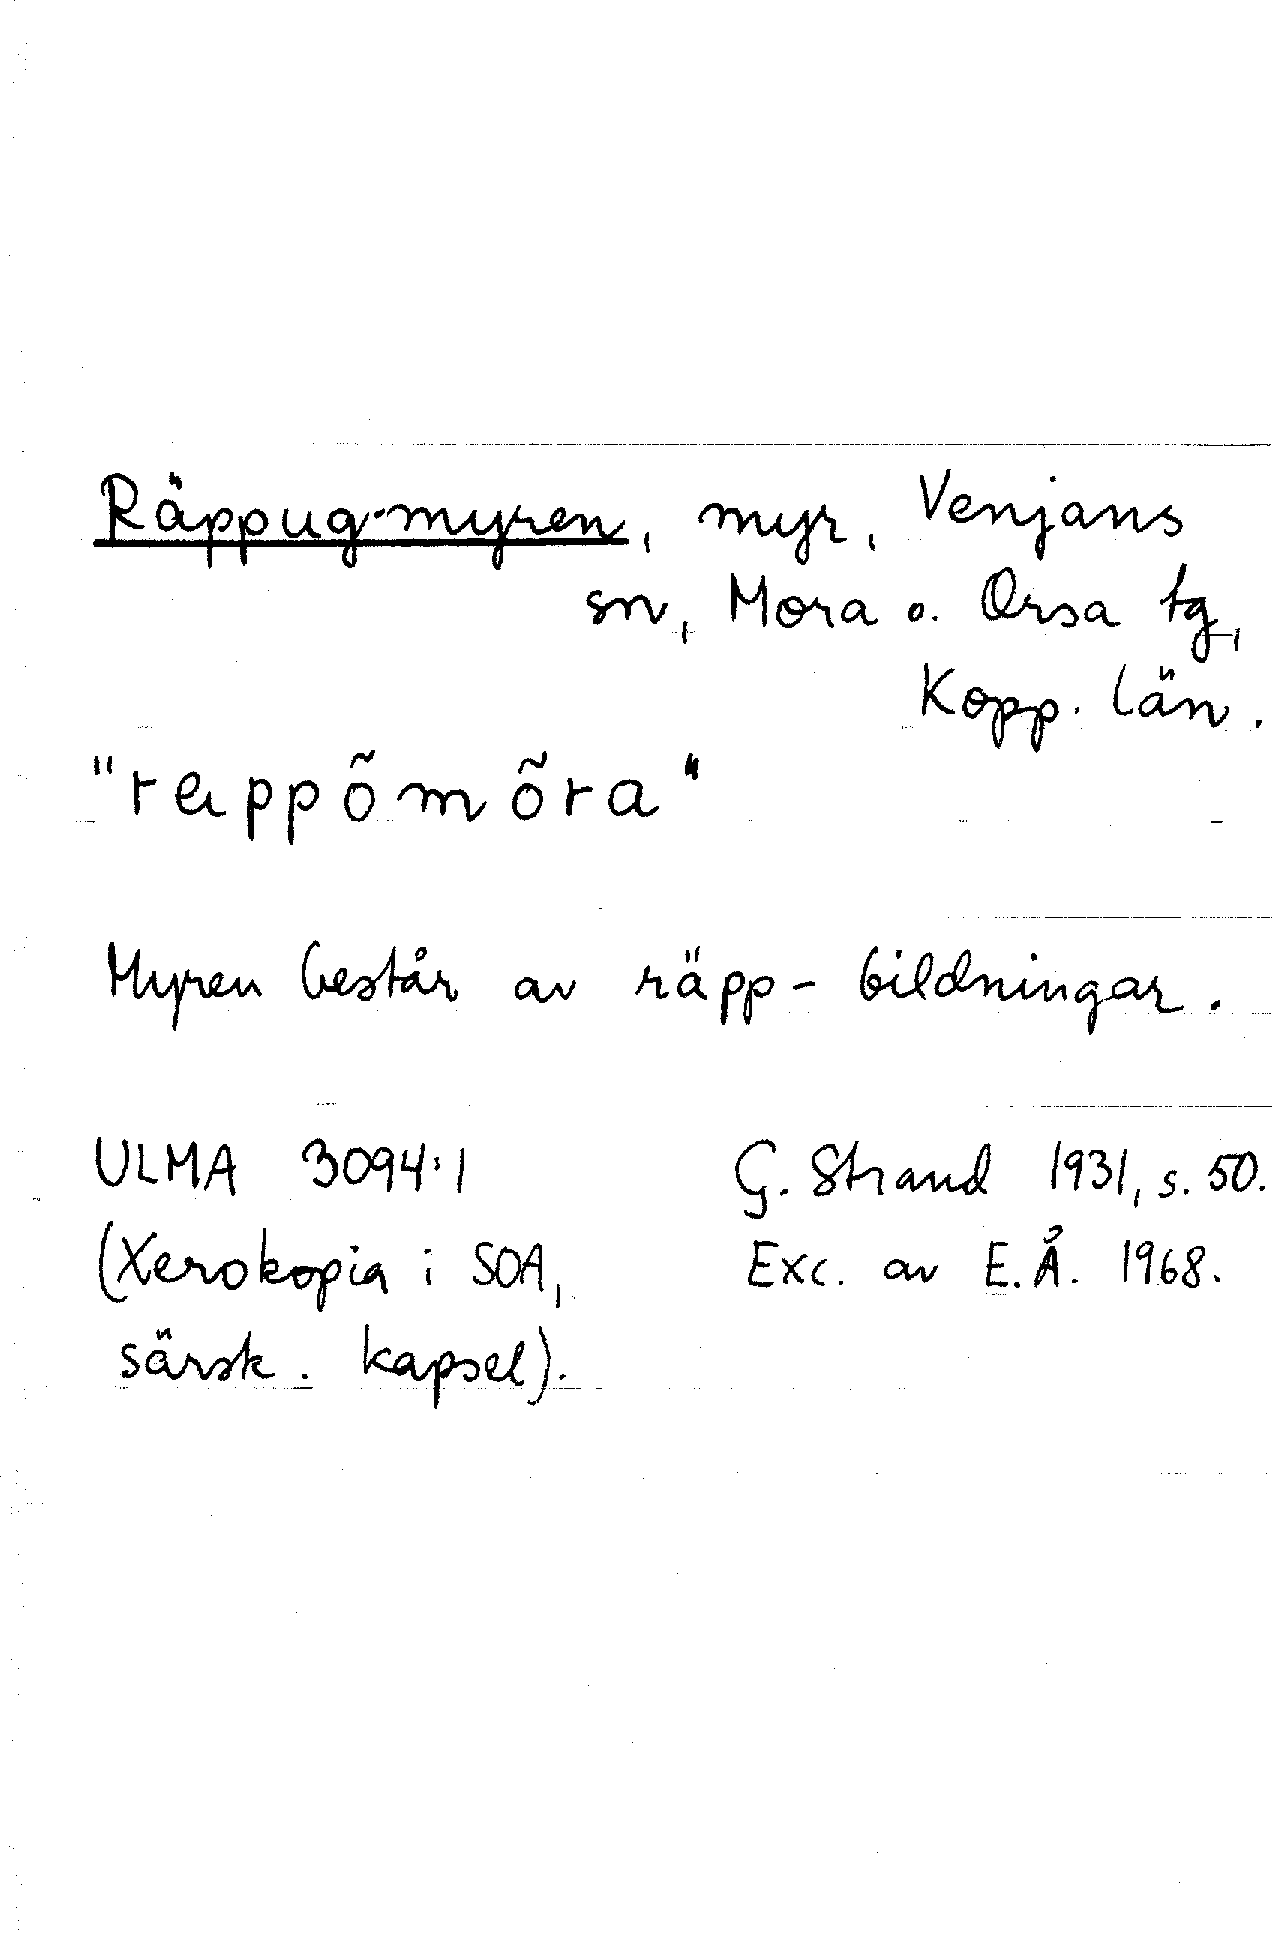 Räppug-myren, myr, Venjans
sn, Mora o. Orsa tg,
Kopp. län.
"räppõmõra"
Myren består av räpp-bildningar.
ULMA 3094:1 G. Strand 1931, s. 50.
(Xerokopia i SOA, Exc. av E.Å. 1968.
särsk. kapsel).